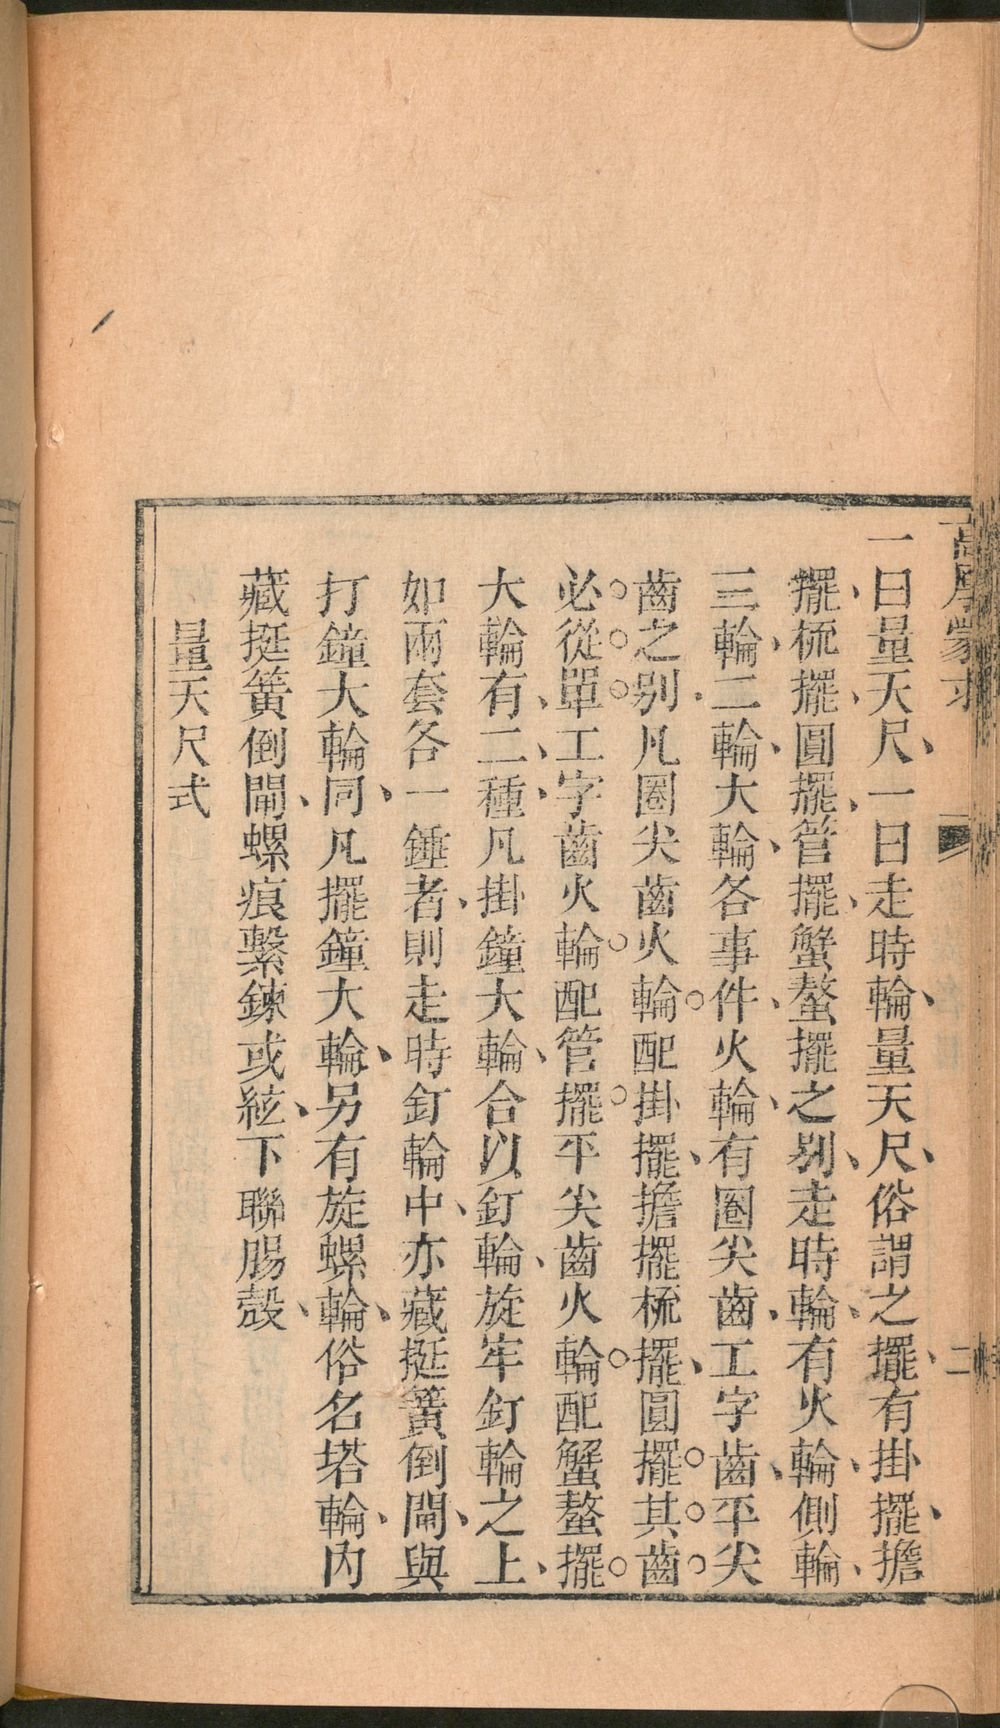 高厚蒙求
二
一曰量天尺一曰走時輪量天尺俗謂之擺有掛擺擔
擺梳擺圓擺管擺蟹螯擺之别走時輪有火輪側輪
三輪二輪大輪各事件火輪有圈尖齒工字齒平尖
齒之别凡圈尖齒火輪配掛擺擔擺梳擺圓擺其齒
必從單工字齒火輪配管擺平尖齒火輪配蟹螯擺
大輪有二種凡掛鐘大輪合以釘輪旋牢釘輪之上
如兩套各一錘者則走時釘輪中亦藏挺簧倒閘與
打鐘大輪同凡擺鐘大輪另有旋螺輪俗名塔輪内
藏挺簧倒閘螺痕繫鍊或絃下聯腸殼
量天尺式